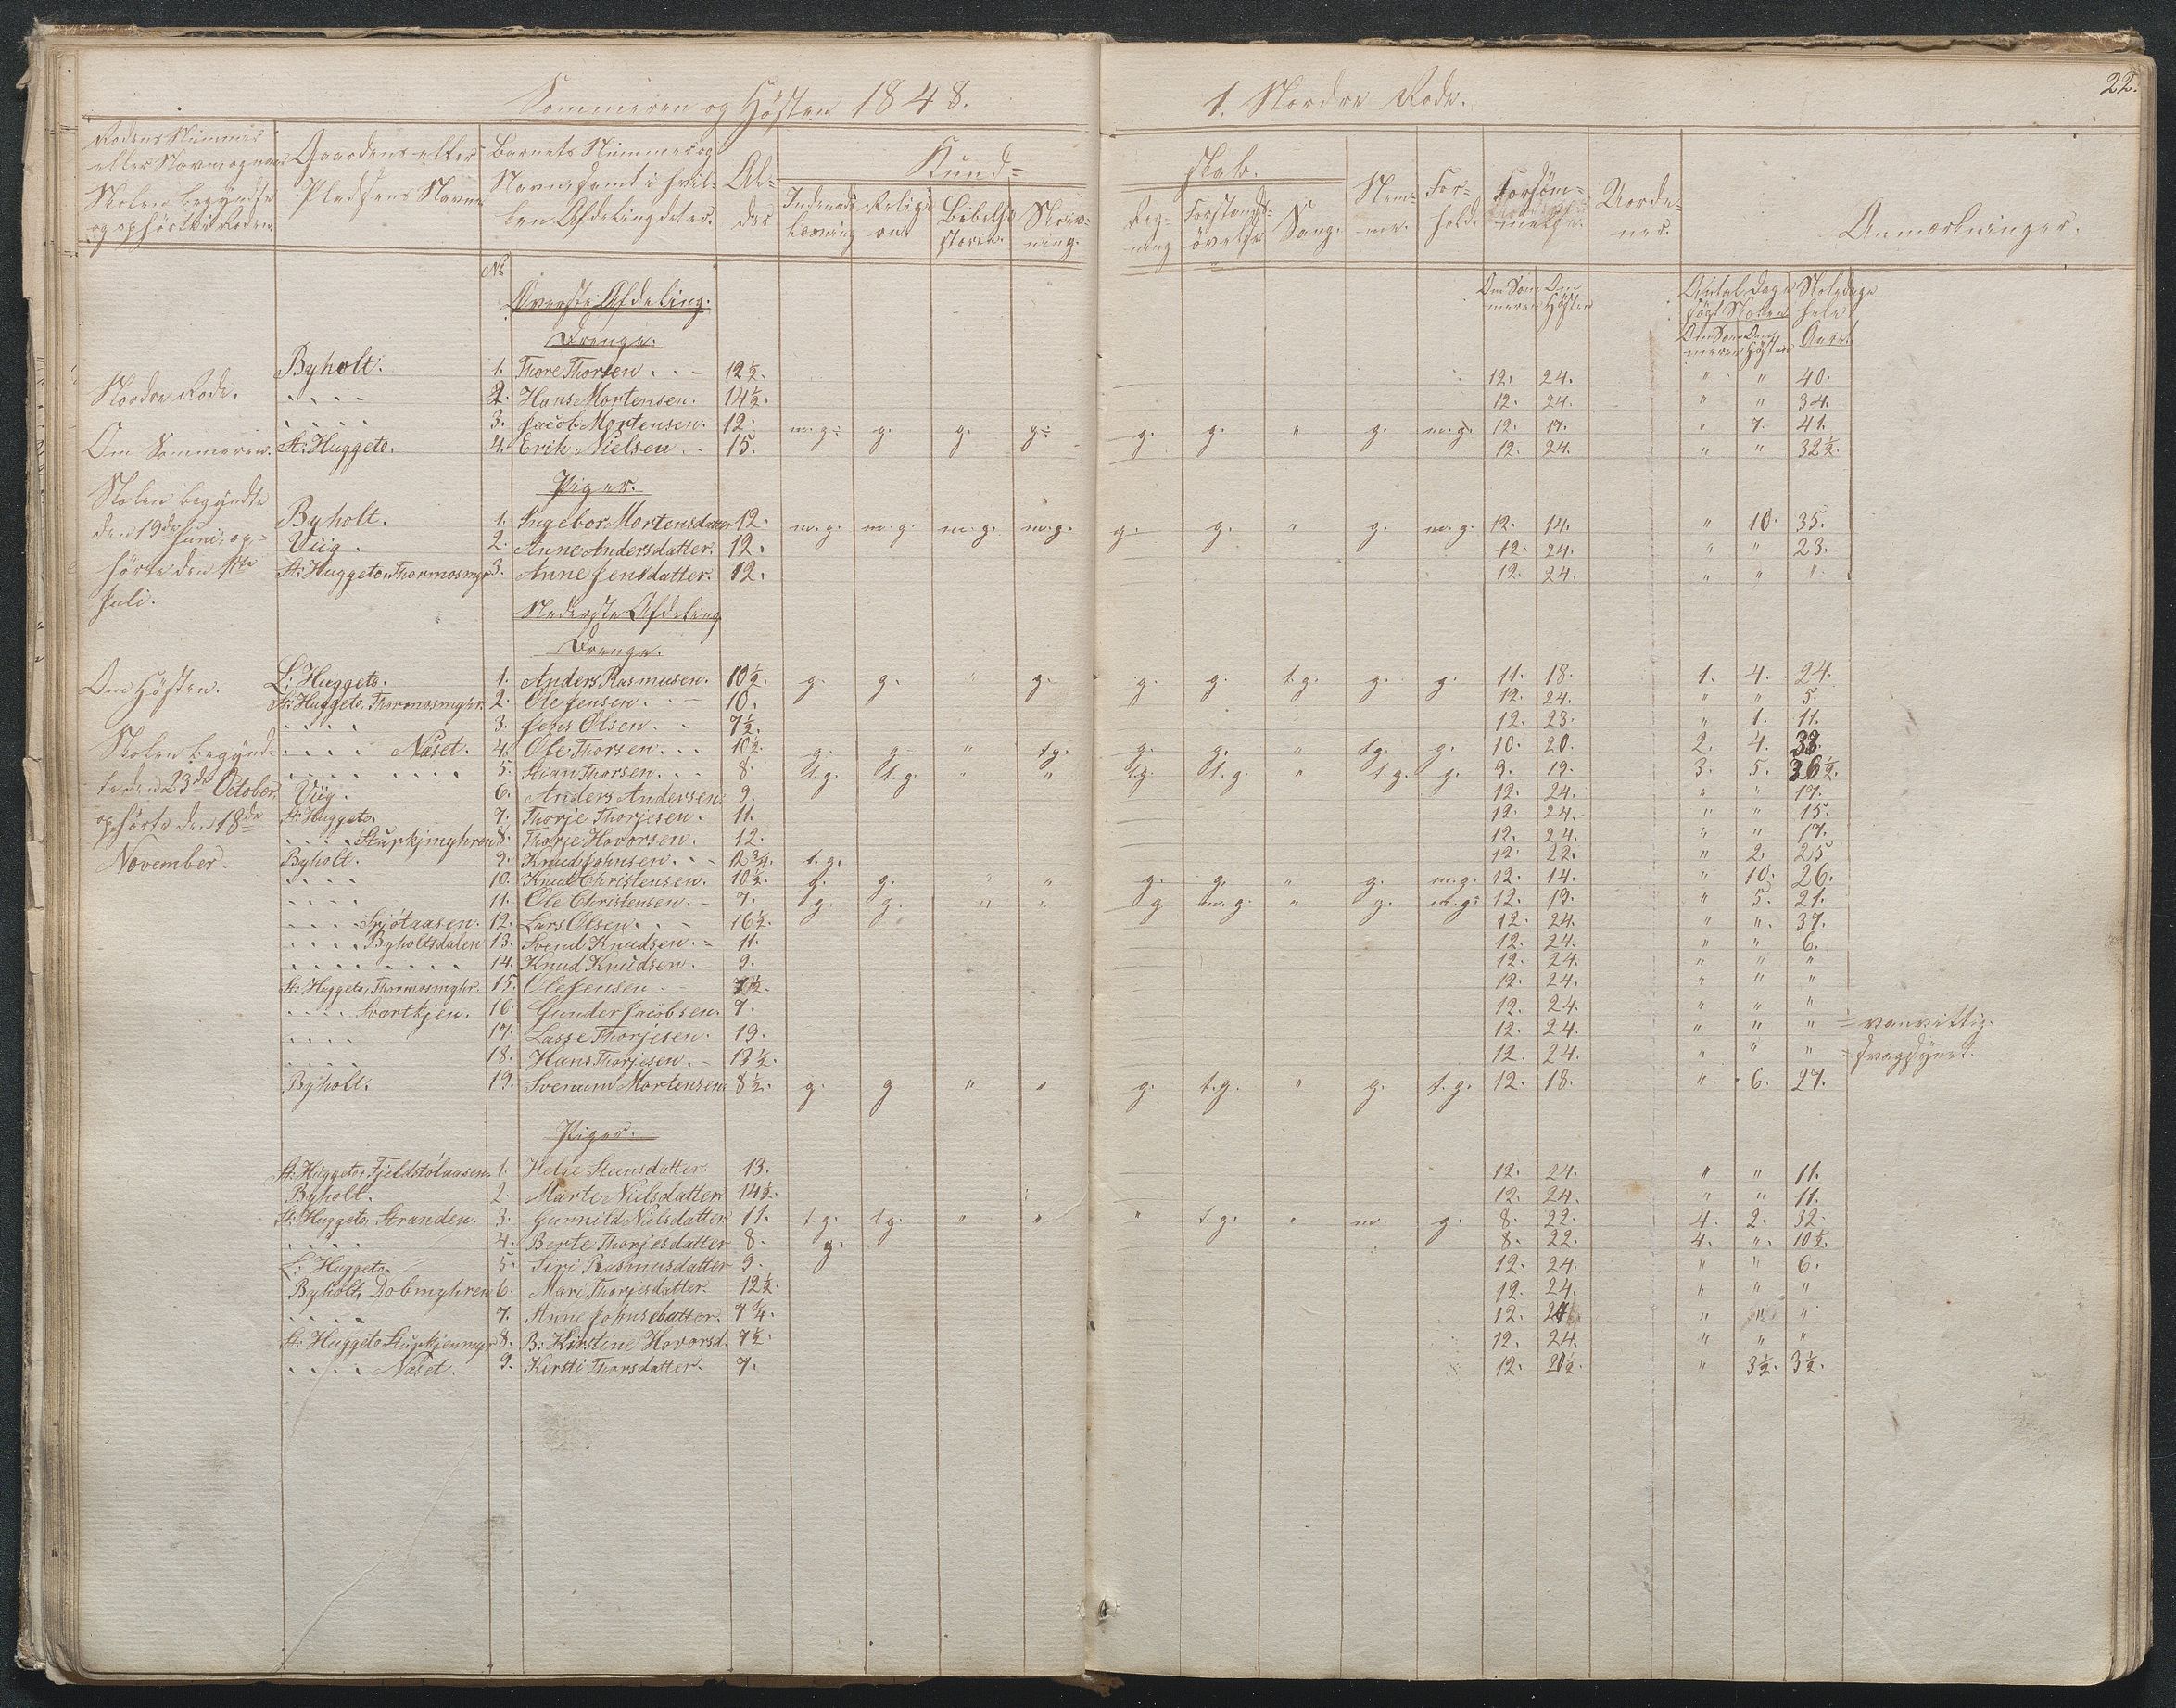 22.
Sommeren og Høsten 1848. 1. Nordre Rode.
Rodens Nummer eller Navn og naar Skolen begyndte og ophørte i Roden
Gaardens eller Pladsens Navn
Barnets Nummer og Navn, samt i hvilken Afdeling det er.
Alder
Kundskab.
Indenadslæsning Religion Bibelhistorie Skrivning.
Regning Forstandsøvelse Sang.
Nemme. Forhold. Forsømmelse. Uordener. Anmærkninger.
No
Om Sommeren Om Høsten
Antal Dage søgt Skolen Skoledage hele Aaret
Om Sommeren Om Høsten
Øverste Afdeling.
Drenge.
Byholt. 1. Thore Thorsen . . - 12½. 12. 24. " " 40.
Nordre Rode.
. . . . 2. Hans Mortensen. 14½. 12. 24. " " 34.
. . . . 3. Jacob Mortensen. 12. m.g÷ g. g. g÷ g. g. " g. m.g. 12. 17. " 7. 41.
Om Sommeren.
St: Huggeto. 4. Erik Nielsen . - 15. 12. 24. " " 32½.
Piger.
Skolen begyndte
den 19de Juni, op-
hørte den 1ste
Juli.
Byholt. 1. Ingebor Mortensdatter 12. m.g. m.g. m.g. m.g. g. g. " g. m.g. 12. 14. " 10. 35.
Viig. 2. Anne Andersdatter. 12. 12. 24. " " 23.
St: Huggeto, Thormosmyr 3. Anne Jensdatter. 12. 12. 24. " " "
Nederste Afdeling
Drenge.
Om Høsten.
L: Huggeto. 1. Anders Rasmusen. 10½. g. g. " g. g. g. t.g. g. g. 11. 18. 1. 4. 24.
St: Huggeto, Thormosmyhr. 2. Ole Jensen. - 10. 12. 24. " " 5.
. . . . 3. Jens Olsen. - 7½. 12. 23. " 1. 11.
Skolen begynd-
te den 23de October,
ophørte den 18de
November.
. . . . Naset. 4. Ole Thorsen . . . 10½. g. g. " tg. g. g. " tg. g. 10. 20. 2. 4. 33.
. . . . . . . . 5. Stian Thorsen . . . 8. t.g. t.g. " " tg. t.g. " t.g. g. 9. 19. 3. 5. 36½.
Viig. 6. Anders Andersen. 9. 12. 24. " " 17.
St: Huggeto. 7. Thorje Thorjesen. 11. 12. 24. " " 15.
. . . . Stupkjmyhren 8. Thorje Hovorsen. 12. 12. 24. " " 17.
Byholt. 9. Knud Johnsen . . - 12¾. t.g. 12. 22. " 2. 25
. . . . 10. Knud Christensen. 10½. g. g. " " g. g. " g. m.g. 12. 14. " 10. 26.
. . . . 11. Ole Christensen. - 7. g. g. " " g m.g. " g. m.g÷ 12. 19. " 5. 21.
. . . . Spjötaasen. 12. Lars Olsen . . - 16½. 12. 24. " " 37.
. . . . Byholtsdalen 13. Svend Knudsen. - 11. 12. 24. " " 6.
. . . . . . . . 14. Knud Knudsen. - 9. 12. 24. " " "
St: Huggeto, Thormosmyhr. 15. Ole Jensen. - 7½. 12. 24. " " "
. . . . Svartkjen. 16. Gunder Jacobsen. 7. 12. 24. " " "
. . . . 17. Lasse Thorjesen. 19. 12. 24. " " " = vanvittig.
. . . . 18. Hans Thorjesen. - 13½. 12. 24. " " "
Byholt. 19. Svenum Mortensen 8½. g. g " " g. t.g. " g. t.g. 12. 18. " 6. 27.
Piger.
St: Huggeto, Fjeldstölaasen 1. Helje Steensdatter. 13. 12. 24. " " 11.
Byholt. 2. Marte Nielsdatter. 14½. 12. 24. " " 11.
St: Huggeto, Stranden. 3. Gunnild Nielsdatter 11. t.g. t.g. " " " t.g. " m. g. 8. 22. 4. 2. 32.
. . . . 4. Berte Thorjesdatter 8. g. 8. 22. 4. " 10½.
L: Huggeto. 5. Siri Rasmusdatter 9. 12. 24. " " 6.
Byholt, Dobmyhren 6. Mari Thorjesdatter. 12½. 12. 24. " " "
. . . . 7. Anne Johnsdatter. 7¼. 12. 24. " " "
St: Huggeto Stupkjenmyr 8. B: Kirstine Hovorsd. 7½. 12. 24. " " "
. . . . Naset. 9. Kirsti Thorsdatter. 7. 12. 20½. " 3½. 3½.